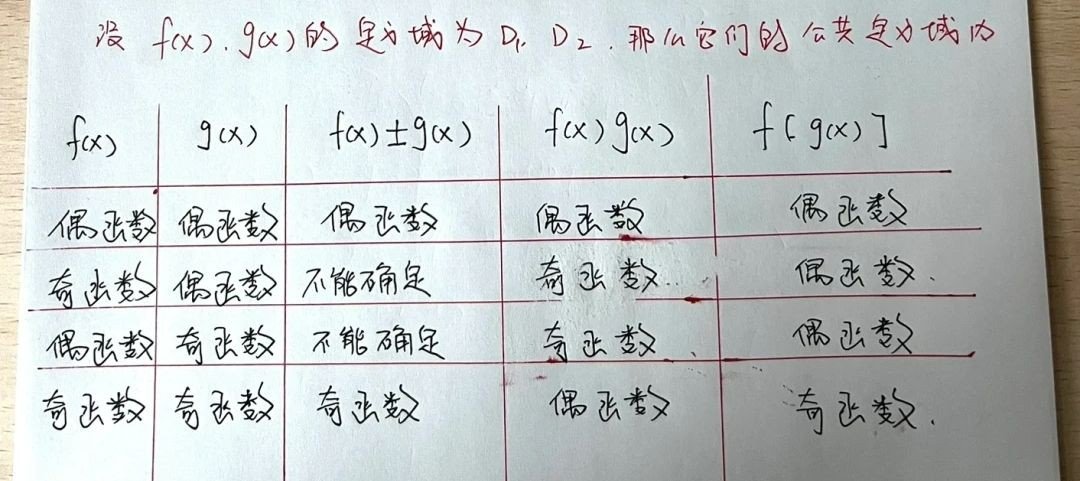 设 f(x)、g(x)的定义域为 D₁、D₂，那么它们的公共定义域内
f(x) g(x) f(x)±g(x) f(x)g(x) f[g(x)]
偶函数 偶函数 偶函数 偶函数 偶函数
奇函数 偶函数 不能确定 奇函数 偶函数.
偶函数 奇函数 不能确定 奇函数 偶函数
奇函数 奇函数 奇函数 偶函数 奇函数.